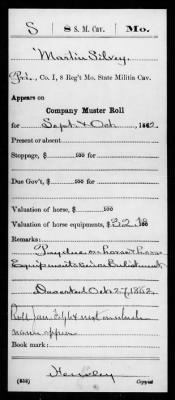 S 8 S. M. Cav. Mo.
Martin Silvey
Pvt., Co. I, 8 Reg't Mo. State Militia Cav.
Appears on
Company Muster Roll
for Sept & Oct, 1862.
Present or absent
Stoppage, $ 100 for
Due Gov't, $ 100 for
Valuation of horse, $ 100
Valuation of horse equipments, $ 32
Remarks: Pay due on horse & horse
Equipments since Enlistment
Deserted Oct 27, 1862
Roll Jan
name
Book mark:
(858) Copyist